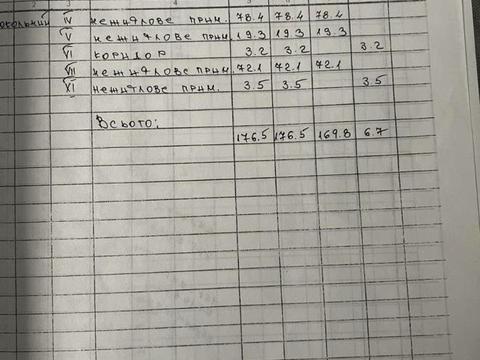 2 3 4 5 6 7 8
IV нежитлове прим. 78.4 78.4 78.4
V нежитлове прим. 19.3 19.3 19.3
VI коридор 3.2 3.2 3.2
VII нежитлове прим. 72.1 72.1 72.1
XI нежитлове прим. 3.5 3.5 3.5
Всього: 176.5 176.5 169.8 6.7